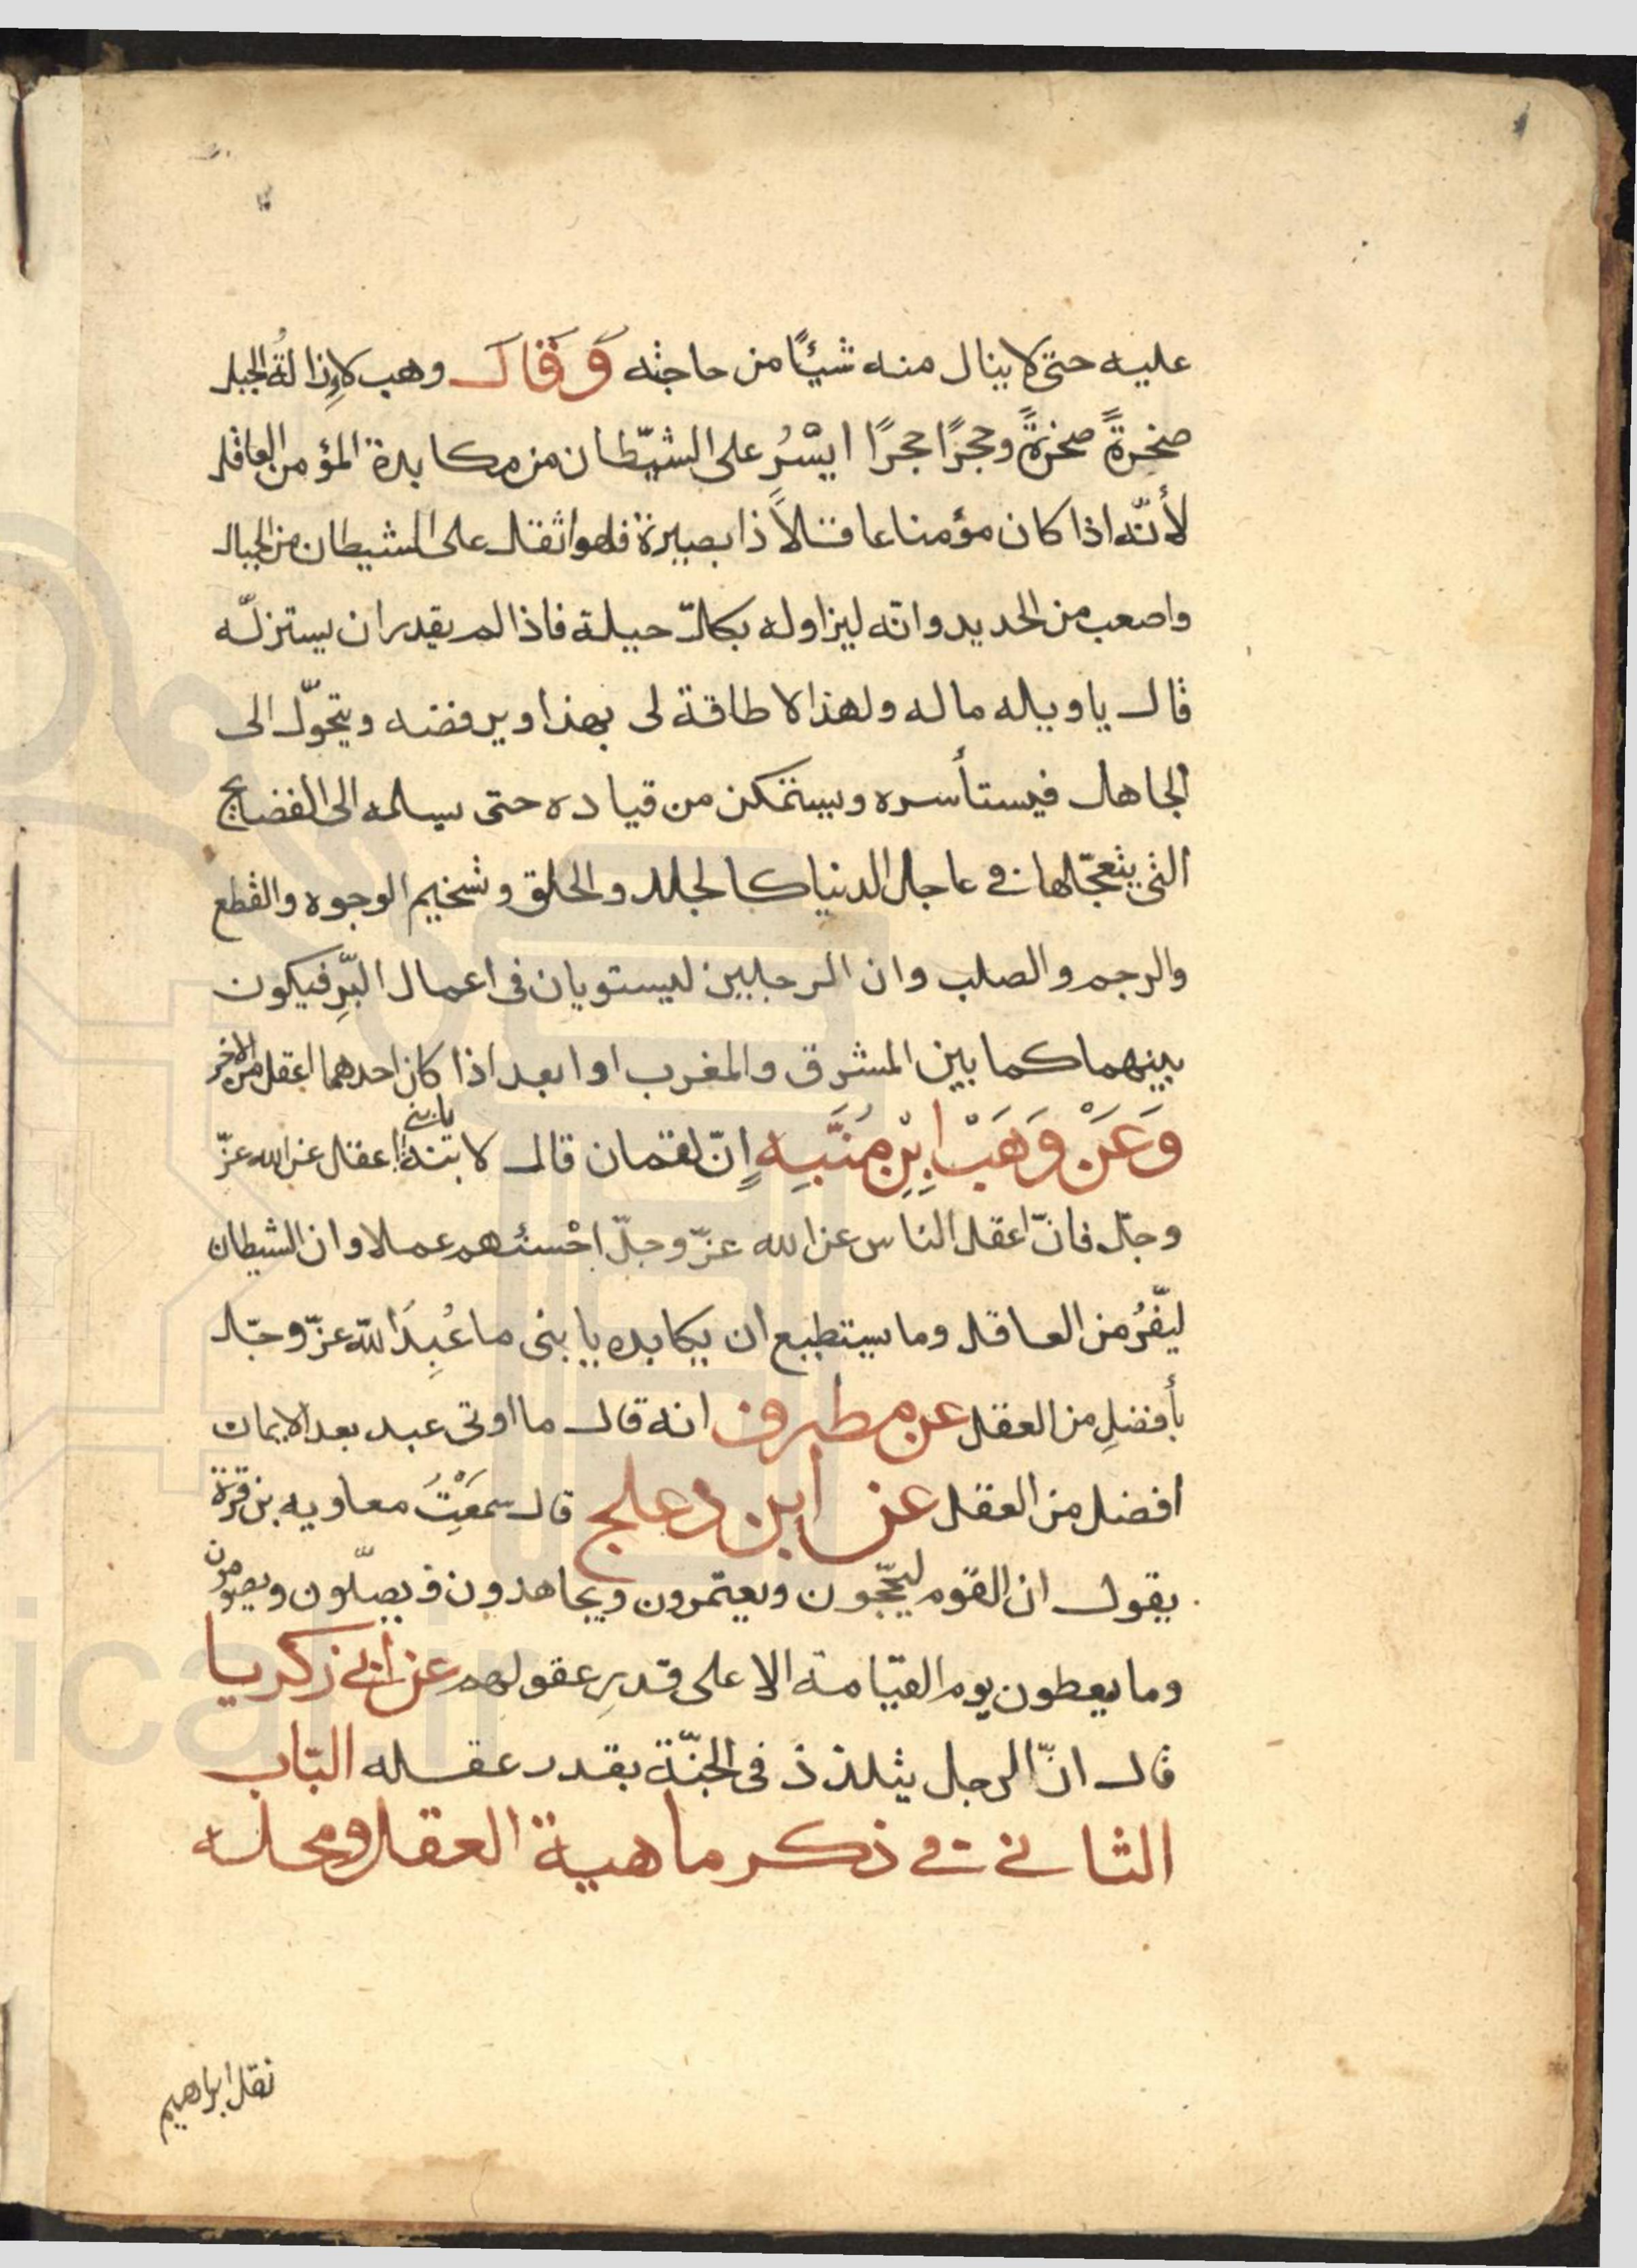 عليه حتى لا ينال منه شيئًا من حاجته وَقَالَ وهب لاِزالةُ الجبل
صخرةً صخرةً وحجرًا حجرًا ايْسَرُ على الشيّطان من مكابدة المؤمن العاقل
لأنّه اذا كان مؤمنا عاقلاً ذا بصيرة فلهو اثقل على الشيطان من الجبال
واصعب من الحديد وانّه ليزاوله بكلّ حيلة فاذا لم يقدر ان يستزلّه
قال يا ويله ماله ولهذا لا طاقة لى بهذا ويرفضه ويتحوّل الى
الجاهل فيستأسره ويستمكن من قياده حتى يسلمه الى الفضايح
التى يتعجّلها في عاجل الدنيا كالجلد والحلق وتسخيم الوجوه والقطع
والرجم والصلب وان الرجلين ليستويان فى اعمال البّرِ فيكون
بينهما كما بين المشرق والمغرب او ابعد اذا كان احدهما اعقل من الاخر
وَعَنْ وَهَبْ اِبْنِ مُنَبِّهِ اِنّ لقمان قال لابنه يا بني اعقل عن الله عزّ
وجلّ فانّ اعقل الناس عن الله عزّ وجلّ احْسنُهم عملا وان الشيطان
ليَفّرُ من العاقل وما يستطيع ان يكابده يا بنى ما عُبِدَ اللّه عزّ وجلّ
بأفضلِ من العقل عن مطرف انه قال ما اوتى عبد بعد الايمان
افضل من العقل عن ابن دعلج قال سمَعْتُ معاويه بن قرة
يقول ان القوم ليحّجون ويعتمرون ويجاهدون ويصلّون ويصومون
وما يعطون يوم القيامة الا على قدرِ عقولهم عن ابى زكريا
قال انّ الرجل يتلذذ فى الجنّة بقدر عقله البّاب
الثاني في ذكر ماهية العقل ومحله
نقل ابراهيم